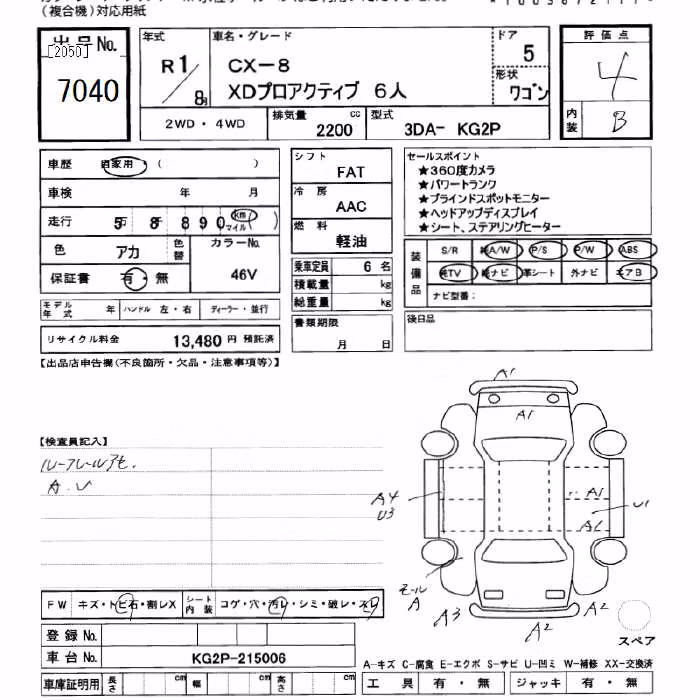 (複合機)対応用紙
出品No.
[2050]
7040
年式
R1/8月
車名・グレード
CX-8
XDプロアクティブ 6人
ドア
5
形状
ワゴン
評価点
4
内装
B
2WD・4WD
排気量 2200 cc
型式 3DA- KG2P
車歴 自家用・( )
車検 年 月
走行 5万 8 8 9 0 km マイル
色 アカ
色替
カラーNo.
46V
保証書 有・無
モデル年式 年
ハンドル 左・右
ディーラー・並行
リサイクル料金 13,480 円 預託済
シフト
FAT
冷房
AAC
燃料
軽油
乗車定員 6 名
積載量 kg
総重量 kg
書類期限
月 日
セールスポイント
★360度カメラ
★パワートランク
★ブラインドスポットモニター
★ヘッドアップディスプレイ
★シート、ステアリングヒーター
装備品
S/R 純A/W P/S P/W ABS
純TV 純ナビ 革シート 外ナビ エアB
ナビ型番:
後日品
【出品店申告欄(不良箇所・欠品・注意事項等)】
【検査員記入】
A.U
A1
A1
A4
U3
A1
A1
U1
モール
A
A3
A2
A2
スペア
FW キズ・トビ石・割レX
シート内装 コゲ・穴・汚レ・シミ・破レ・スレ
登録No.
車台No. KG2P-215006
車庫証明用 長さ cm 幅 cm 高さ cm
A-キズ C-腐食 E-エクボ S-サビ U-凹ミ W-補修 XX-交換済
工具 有・無 ジャッキ 有・無